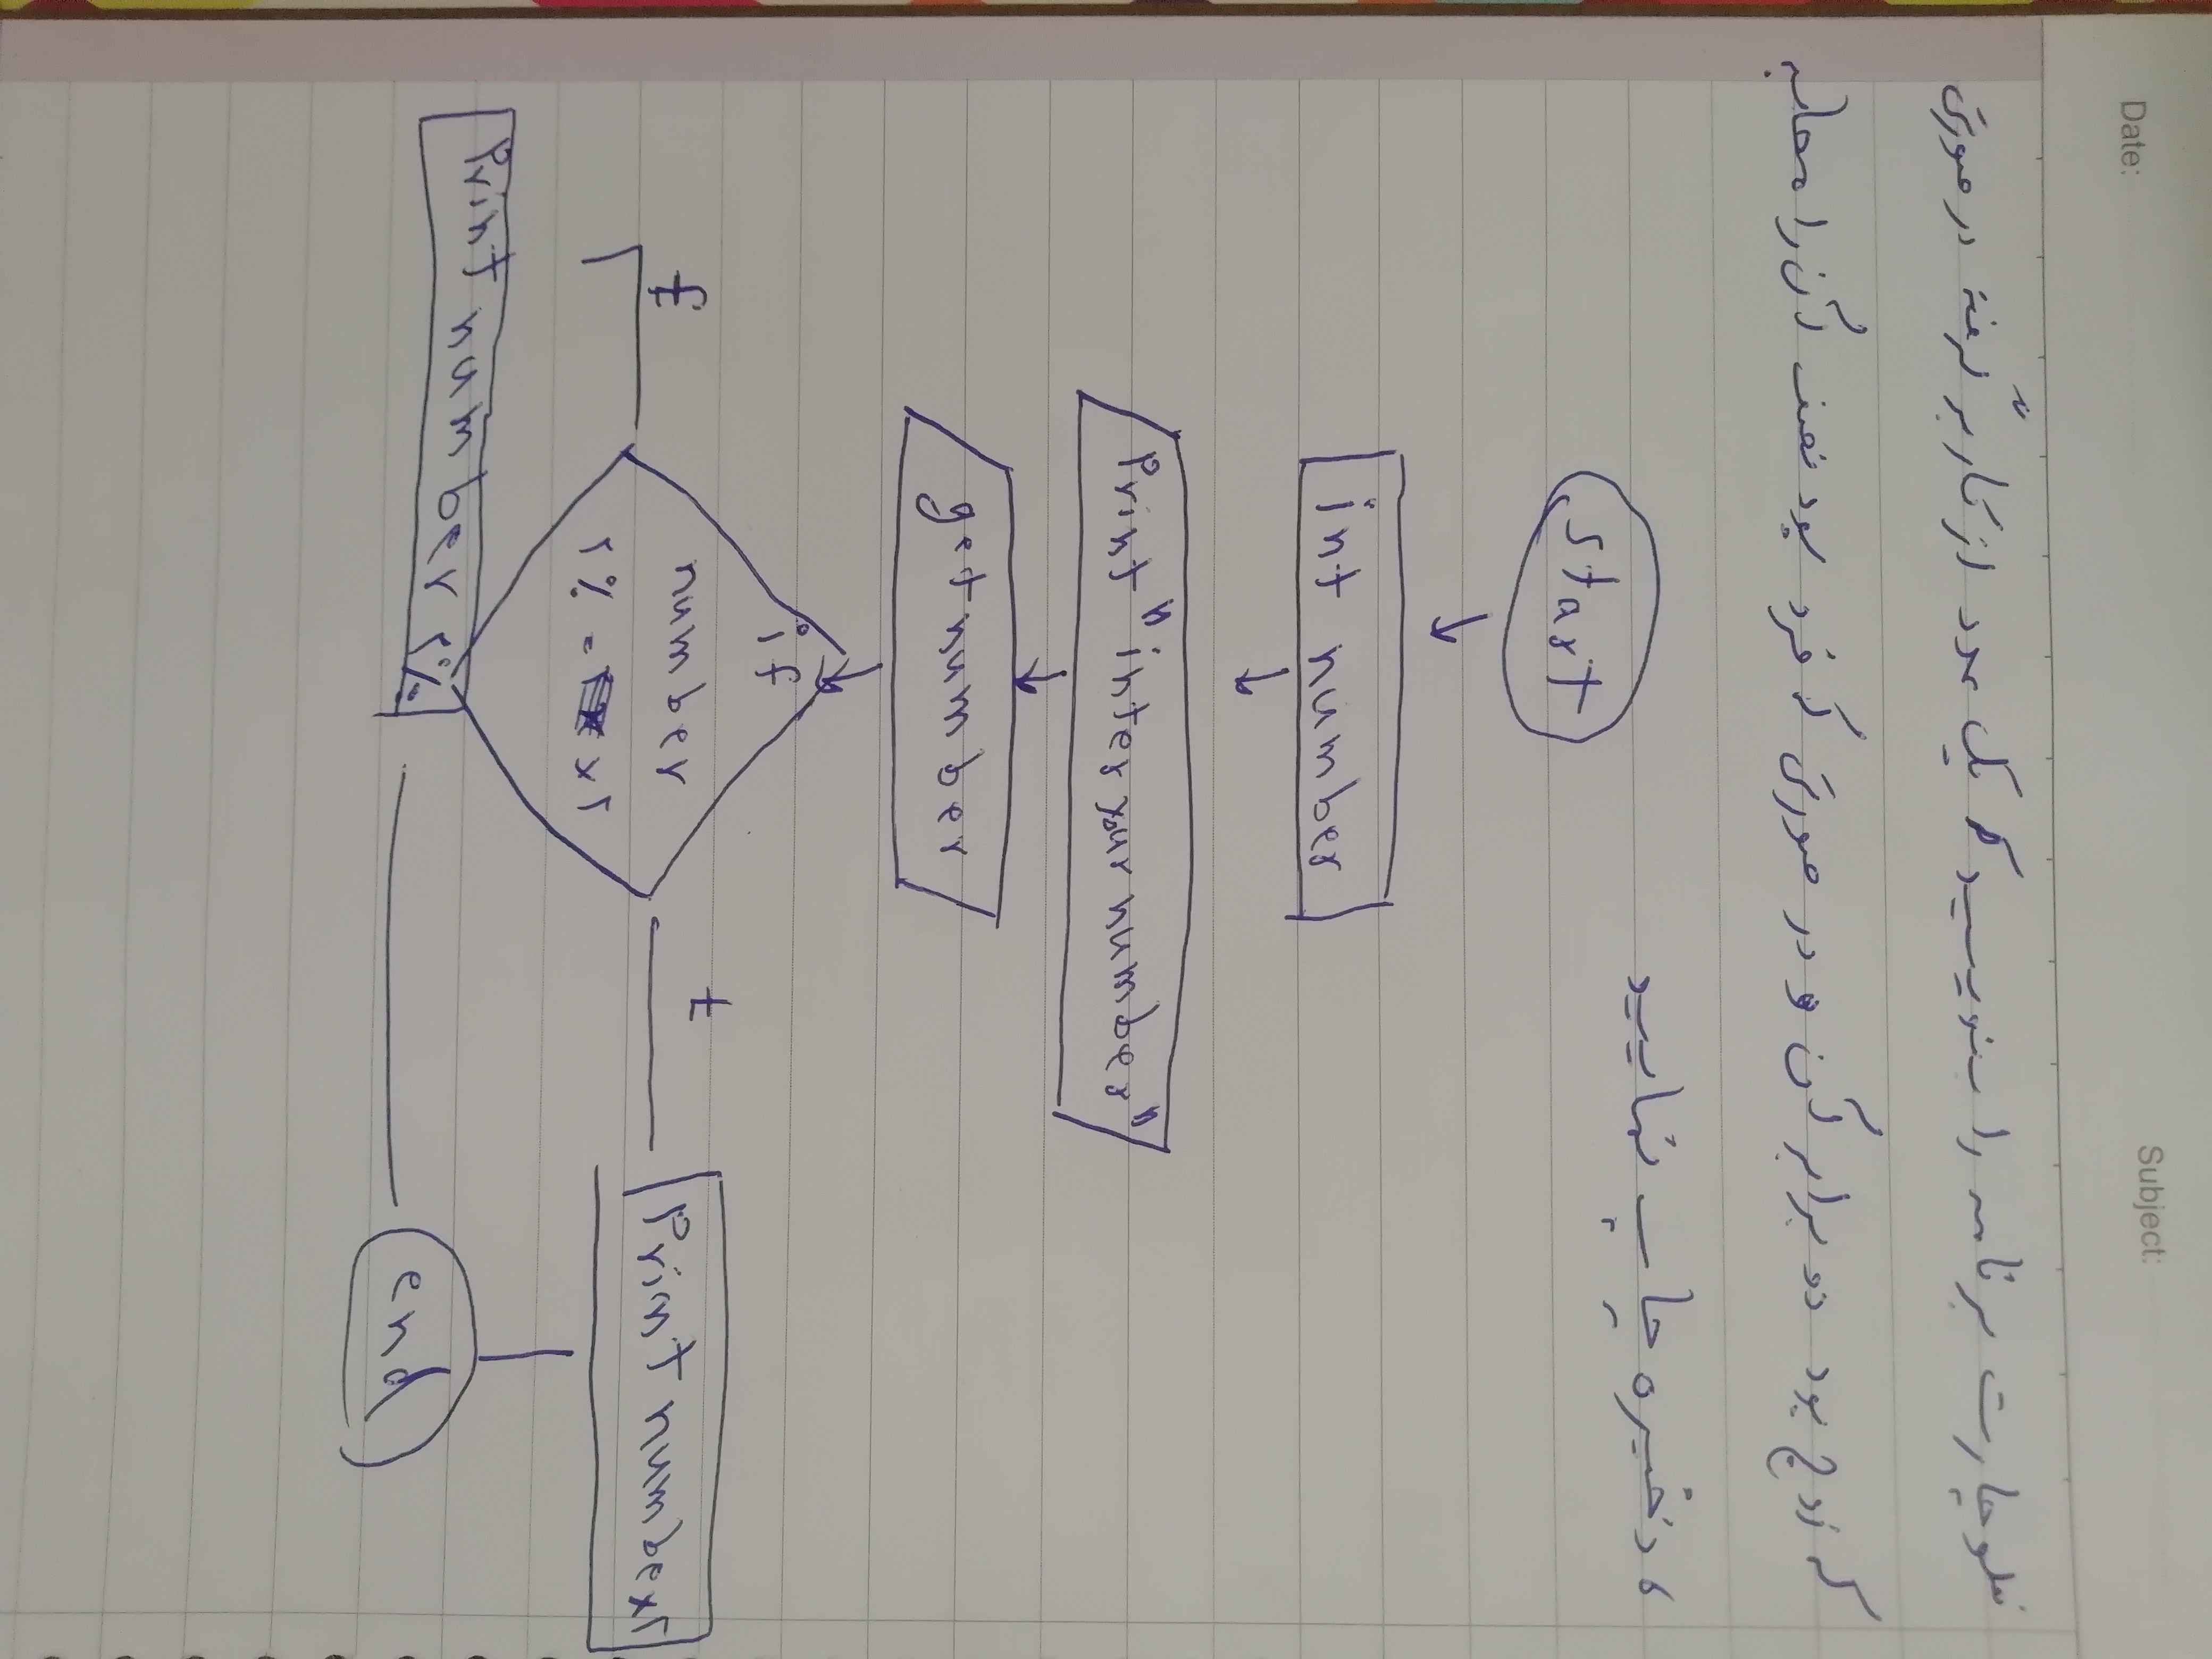 Date:
Subject:
فلوچارت برنامه را بنویسید که یک عدد از کاربر گرفته در صورتی
که زوج بود دو برابر آن و در صورتی که فرد بود نصف آن را محاسبه
و ذخیره چاپ نمایید
start
int number
Print "inter your number"
get number
if
number
۲% = x۲
f
t
Print number ۲%
Print number x۲
end